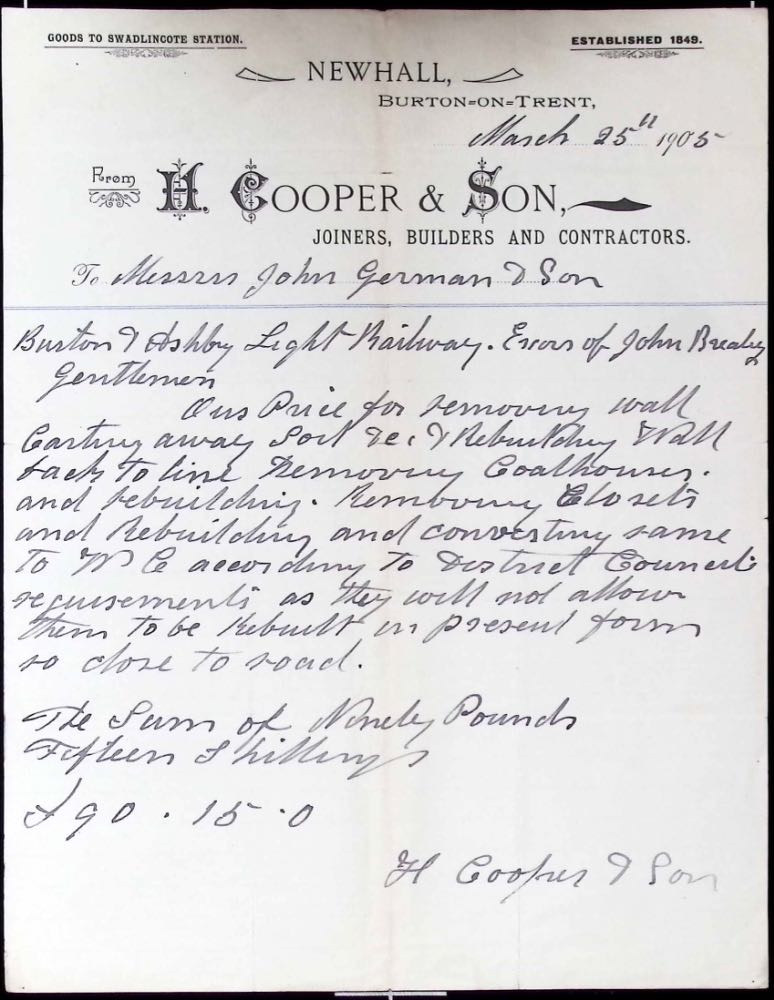 GOODS TO SWADLINCOTE STATION.
ESTABLISHED 1849.
NEWHALL,
BURTON=ON=TRENT,
March 25th 1905
From H. COOPER & SON,
JOINERS, BUILDERS AND CONTRACTORS.
To Messrs John German & Son
Burton & Ashby Light Railway. Exors of John Brealey
Gentlemen
Our Price for removing wall
Carting away Soil &c. & Rebuilding Wall
back to line Removing Coalhouses.
and rebuilding. Removing Closets
and Rebuilding and converting same
to W C according to District Councils
requirements as they will not allow
them to be Rebuilt in present form
so close to road.
The Sum of Ninety Pounds
Fifteen Shillings
£90 . 15 . 0
H Cooper & Son